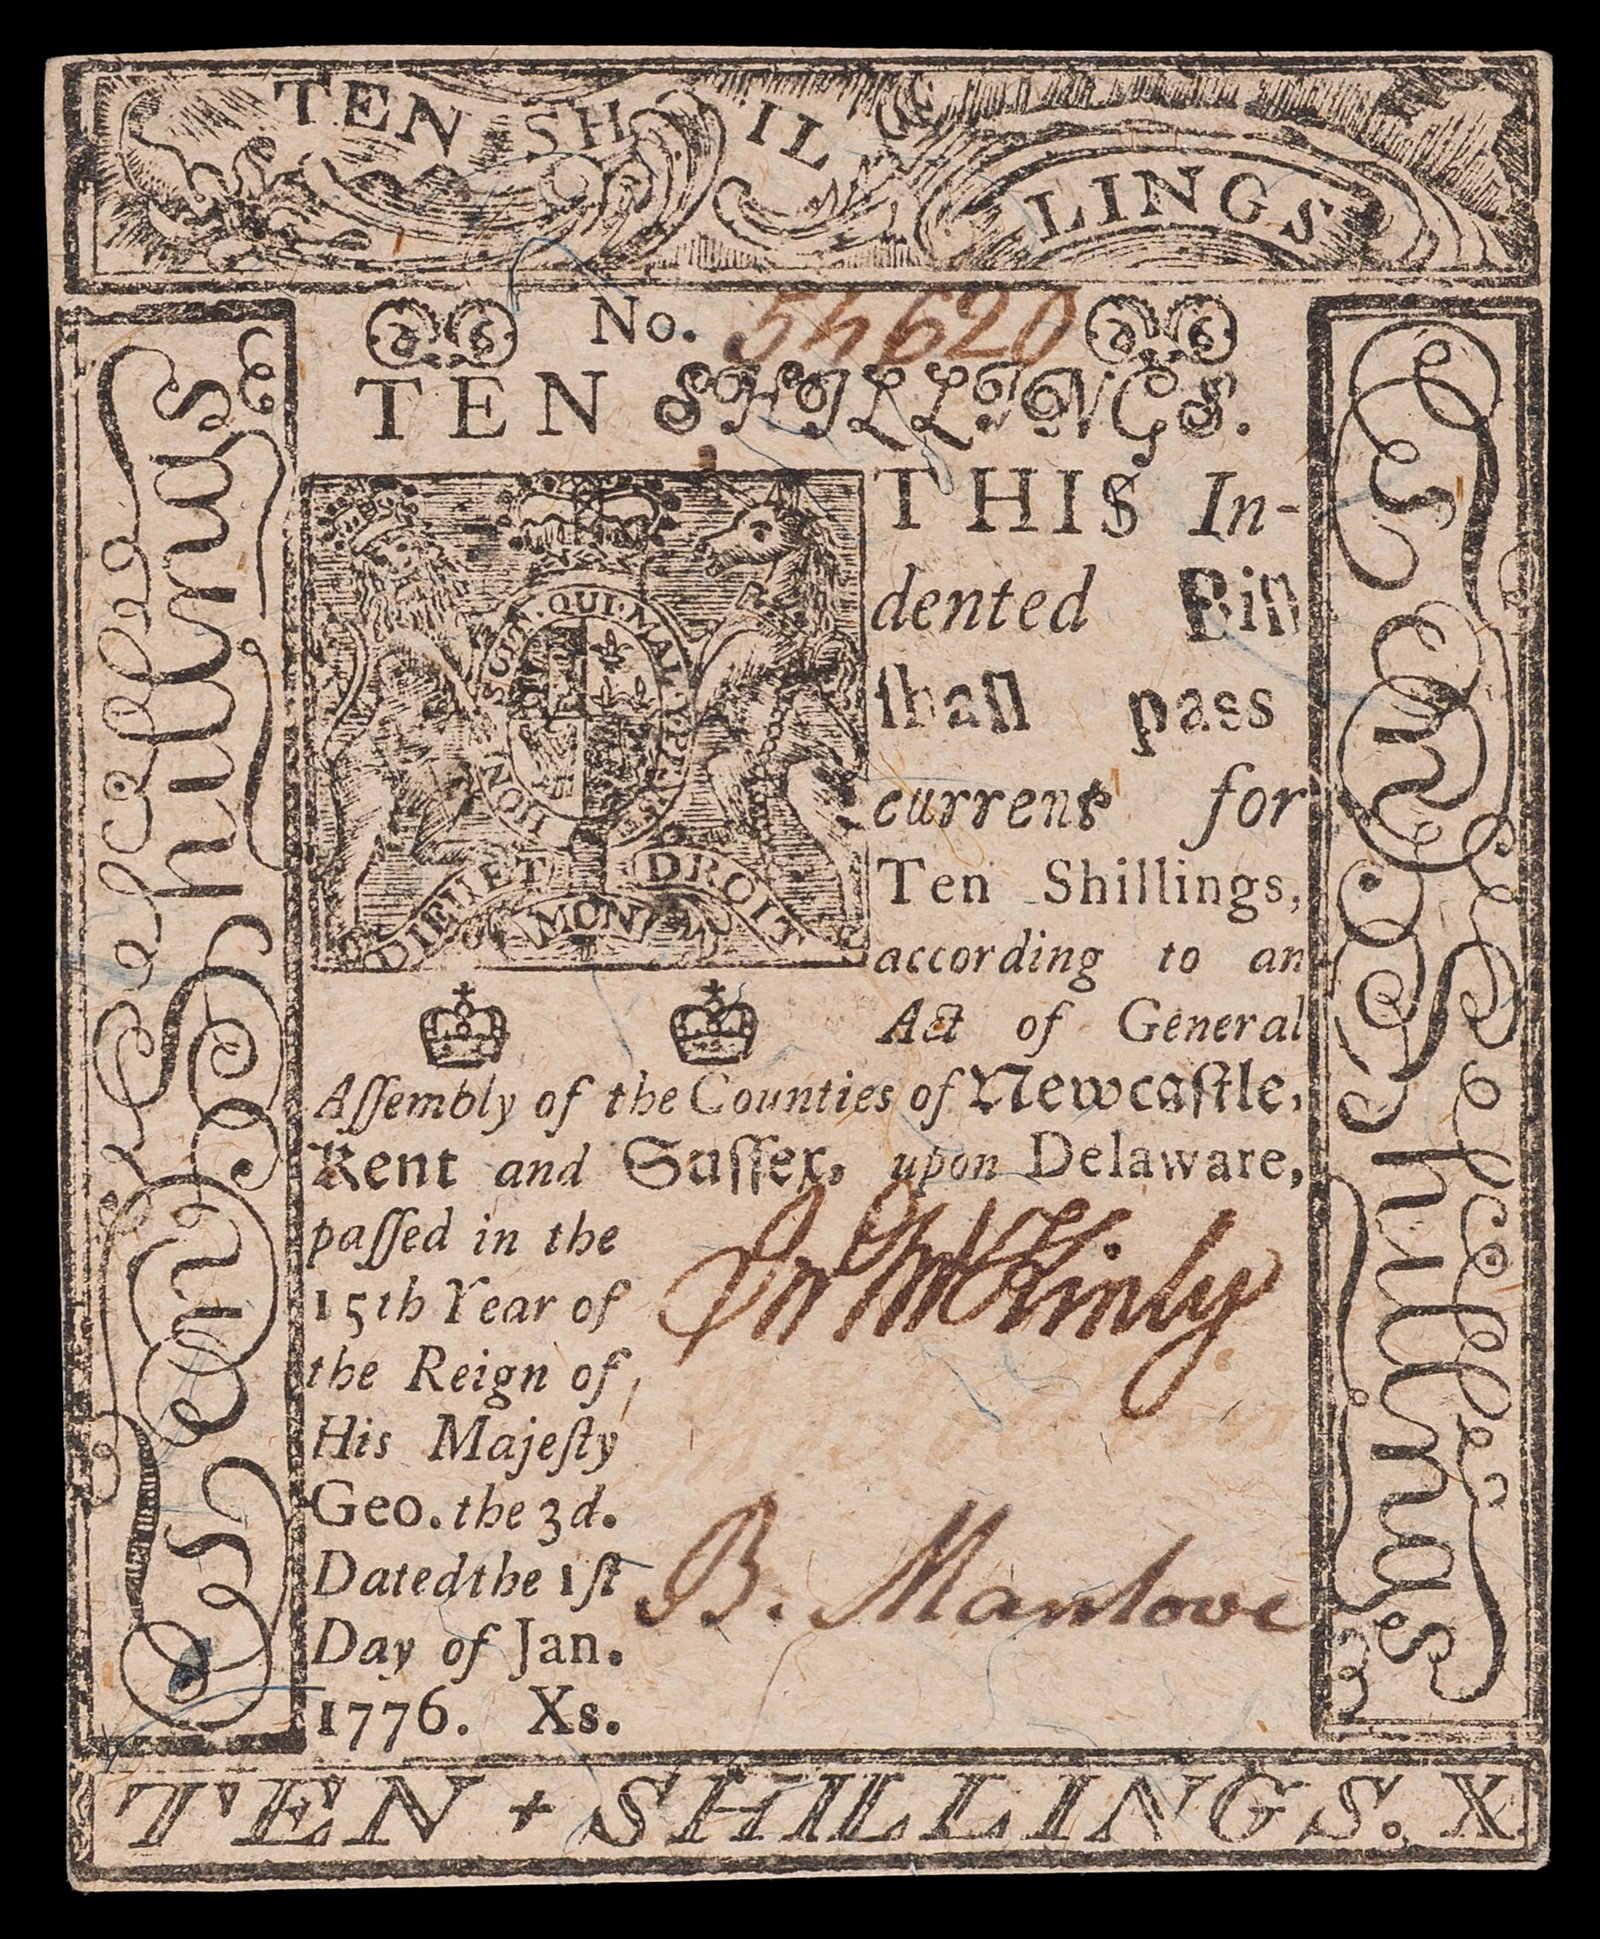 TEN SHILLINGS
No. 54620
TEN SHILLINGS.
THIS In-
dented Bill
shall pass
current for
Ten Shillings,
according to an
Act of General
Assembly of the Counties of Newcastle,
Kent and Sussex, upon Delaware,
passed in the
15th Year of
the Reign of
His Majesty
Geo. the 3d.
Dated the 1st
Day of Jan.
1776. Xs.
HONI SOIT QUI MAL Y PENSE
DIEU ET MON DROIT
Jno. McKinly
B. Manlove
Ten Shillings
Ten Shillings
TEN + SHILLINGS. X